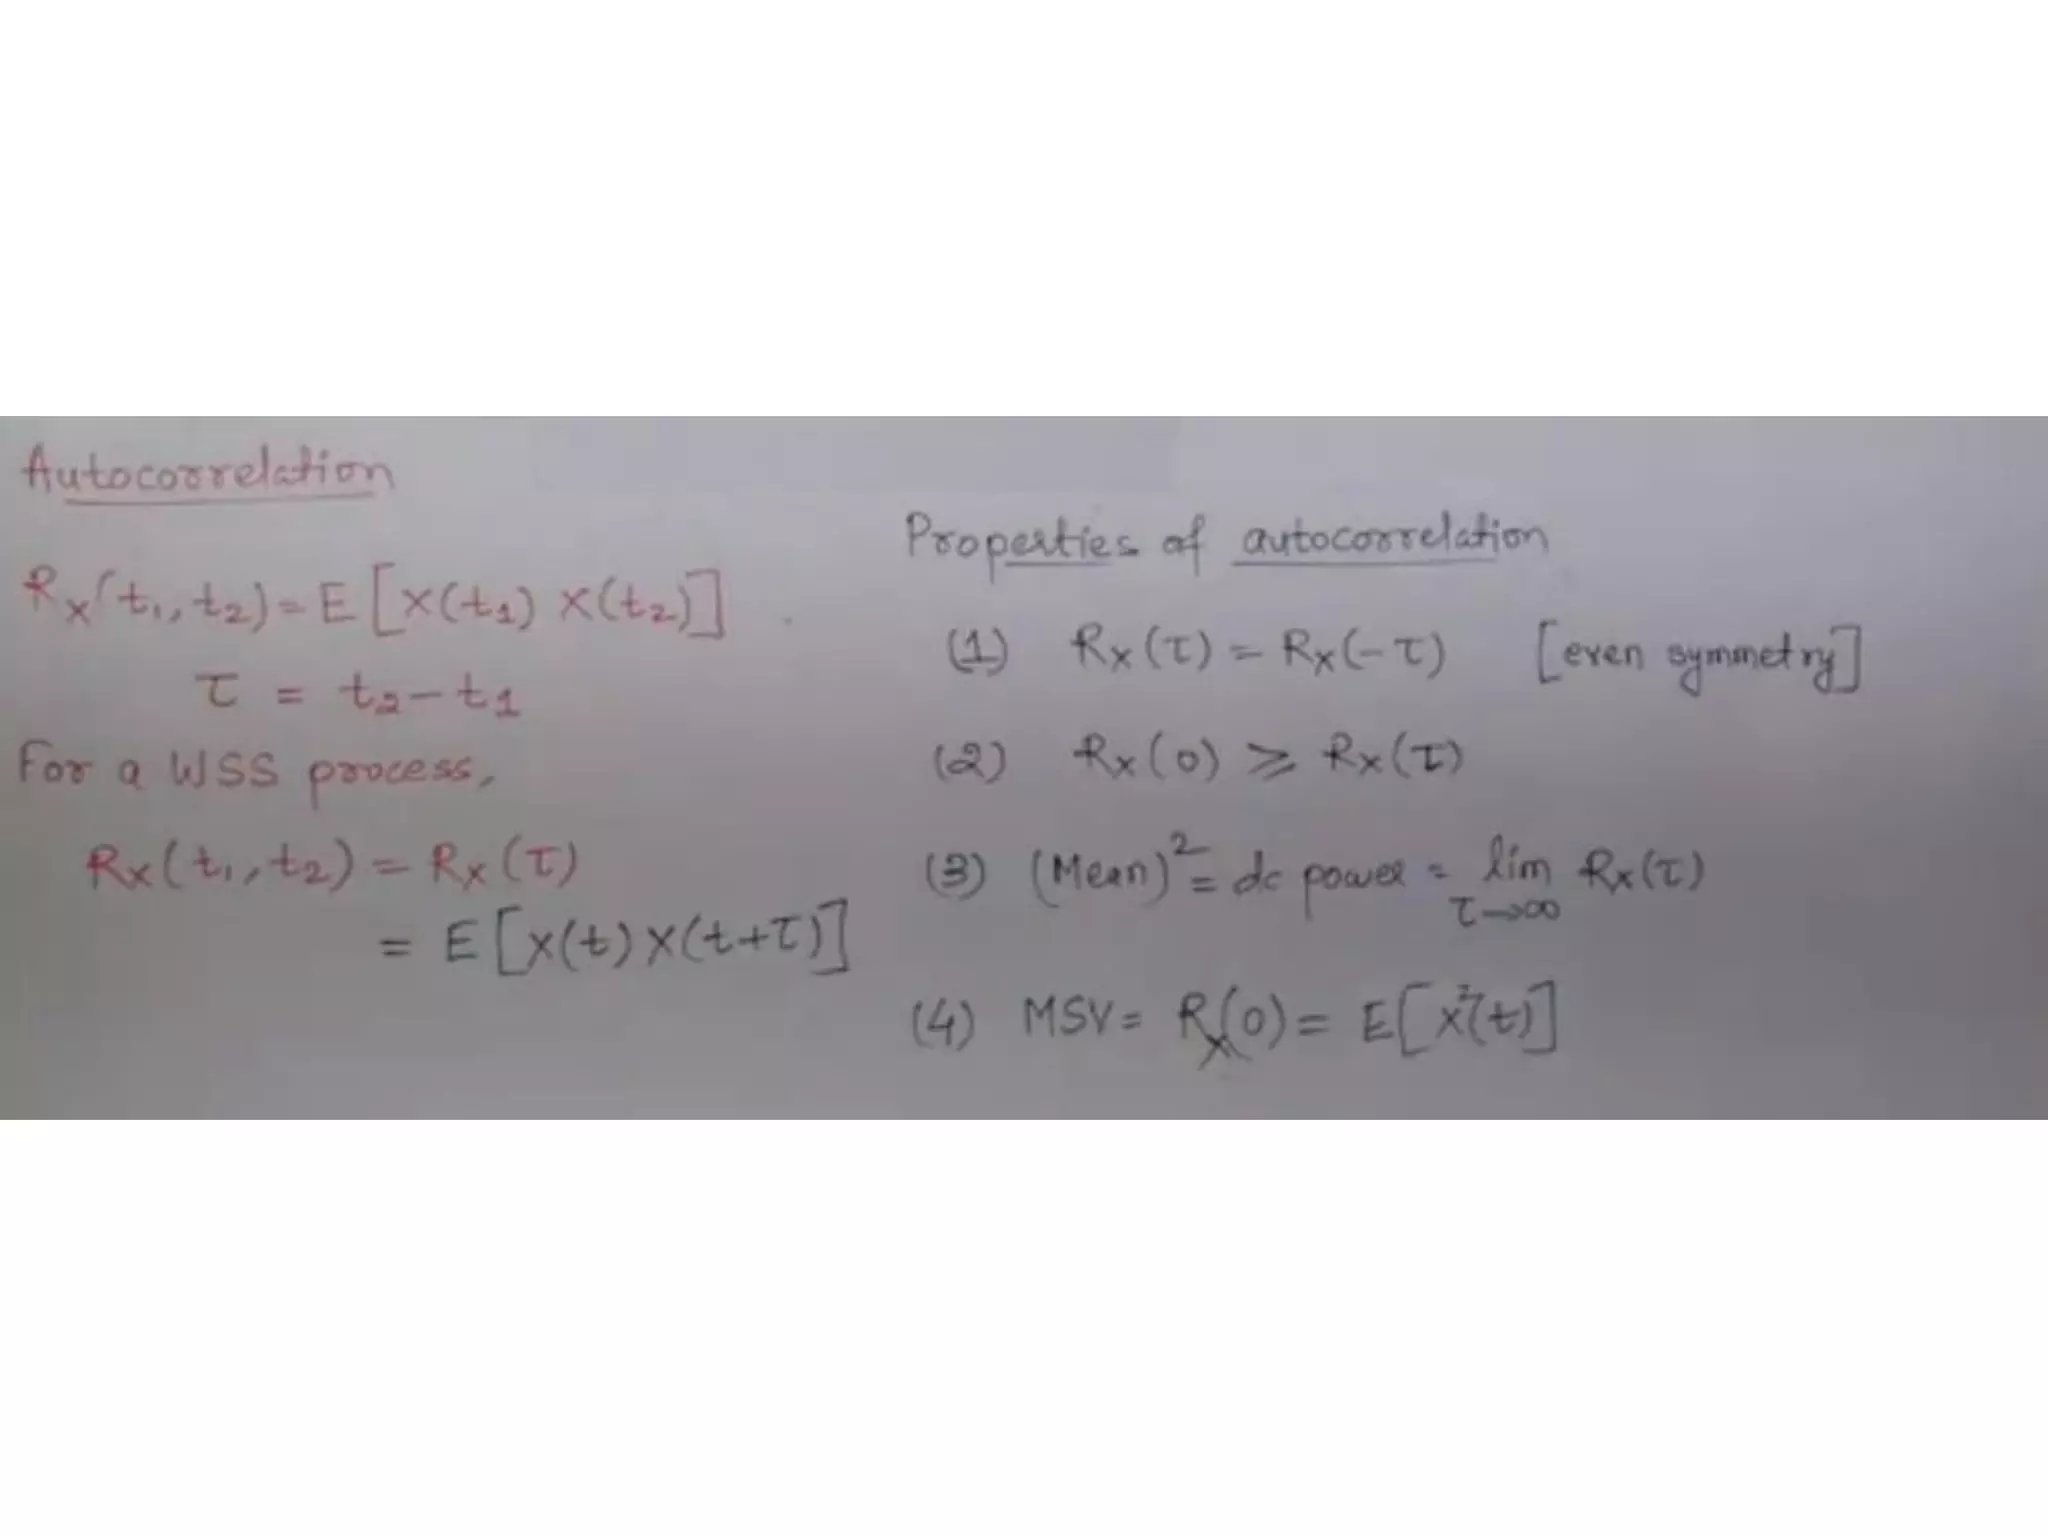 Autocorrelation
Rx(t1, t2) = E[X(t1) X(t2)]
τ = t2 - t1
For a WSS process,
Rx(t1, t2) = Rx(τ)
= E[X(t) X(t+τ)]
Properties of autocorrelation
(1) Rx(τ) = Rx(-τ) [even symmetry]
(2) Rx(0) ⩾ Rx(τ)
(3) (Mean)² = dc power = lim τ→∞ Rx(τ)
(4) MSV = Rx(0) = E[X²(t)]